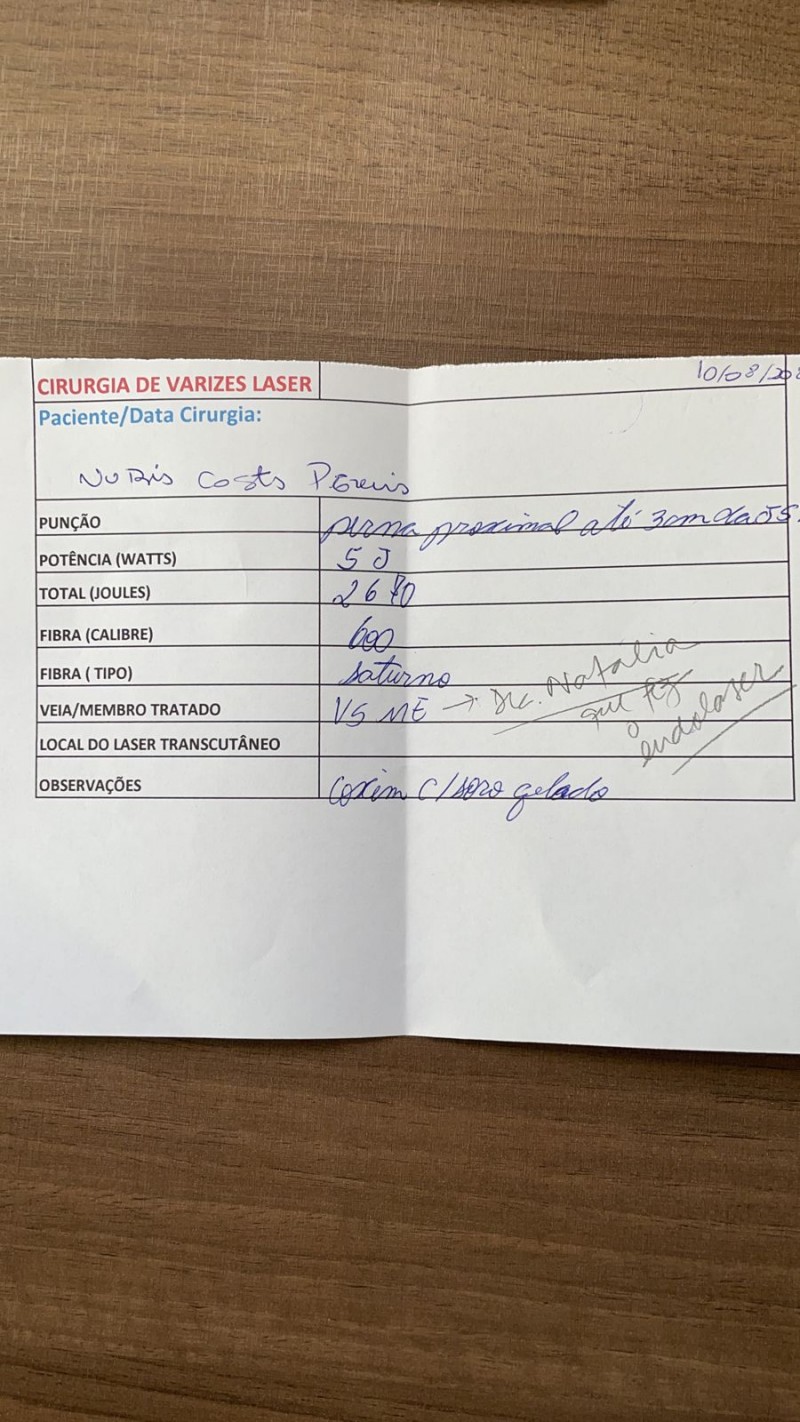 CIRURGIA DE VARIZES LASER
10/08/202
Paciente/Data Cirurgia:
Nubis Costs Pereris
PUNÇÃO perna proximal até 3cm da JS
POTÊNCIA (WATTS) 5 J
TOTAL (JOULES) 2670
FIBRA (CALIBRE) 600
FIBRA ( TIPO) saturno
VEIA/MEMBRO TRATADO VS ME → Dra. Natália
que fez
o endolaser
LOCAL DO LASER TRANSCUTÂNEO
OBSERVAÇÕES coxim c/soro gelado